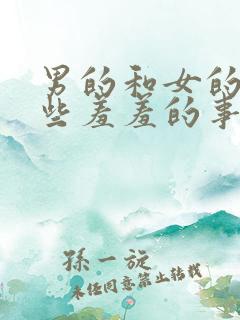 男的和女的
些羞羞的事
孫一旋
未任同意禁止转载